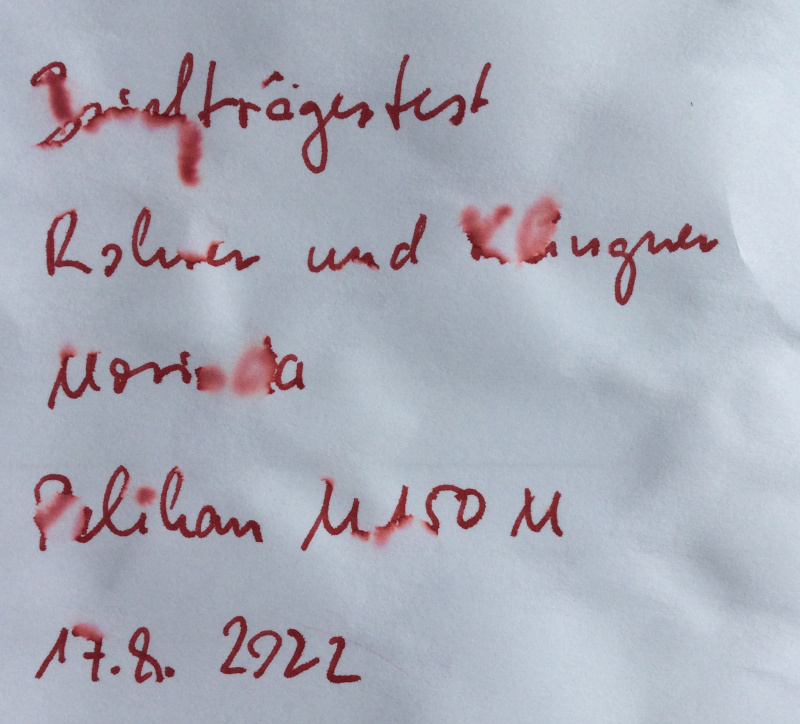 Briefträgertest
Rohrer und Klingner
Morinda
Pelikan M150 M
17.8. 2022